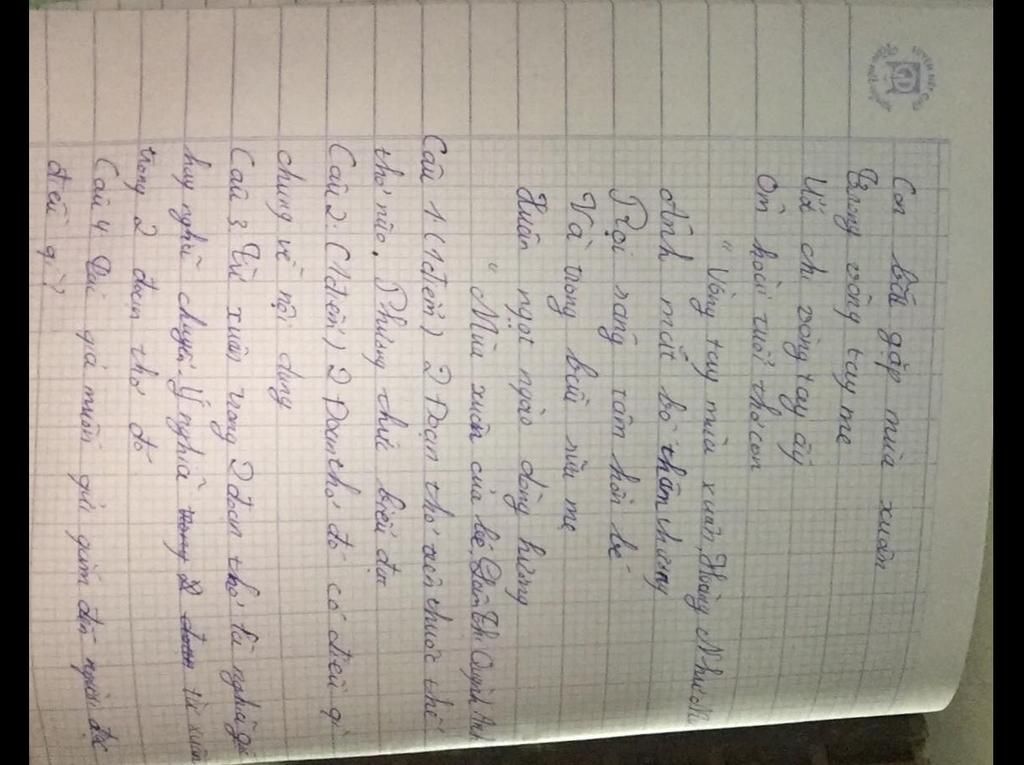 Con bắt gặp mùa xuân
Trong vòng tay mẹ
Ước chi vòng tay ấy
Ôm hoài tuổi thơ con
"Vòng tay mùa xuân, Hoàng Như Mai
Ánh mắt bố thân thương
Rọi sáng tâm hồn bé
Và trong bầu sữa mẹ
Xuân ngọt ngào dòng hương
"Mùa xuân của bé, Lâm Thị Quỳnh Anh
Câu 1 (1 điểm) 2 Đoạn thơ trên thuộc thể
thơ nào. Phương thức biểu đạt
Câu 2: (1 điểm) 2 Đoạn thơ đó có điểm gì
chung về nội dung
Câu 3 Từ xuân trong 2 đoạn thơ là nghĩa gốc
hay nghĩa chuyển. Ý nghĩa từ xuân
trong 2 đoạn thơ đó
Câu 4 Tác giả muốn gửi gắm đến người đọc
điều gì?